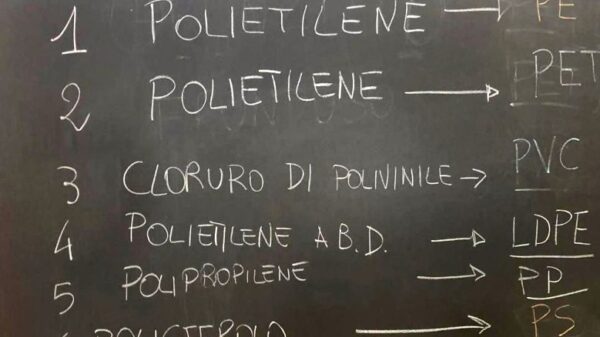 1 POLIETILENE → PE
2 POLIETILENE → PET
3 CLORURO DI POLIVINILE → PVC
4 POLIETILENE A B.D. → LDPE
5 POLIPROPILENE → PP
POLISTEROLO → PS